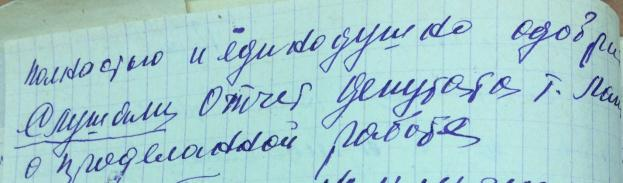 полностью и единодушно одобри
Слушали Отчет депутата т. Пан
о проделанной работе